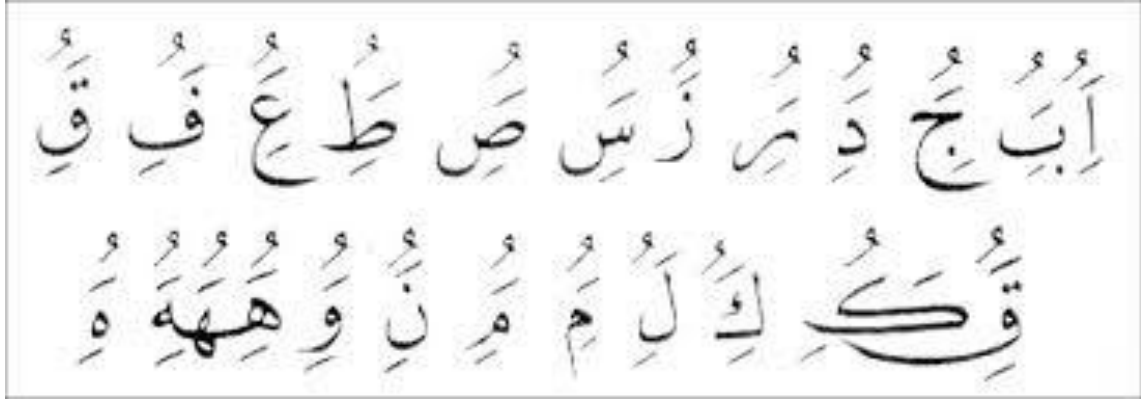 اَِبَُِ جَُِ دَُِ رَُِ زَُ سَُِ صَُِ طَُِ عَُِ فَُِ قَُِ
قَُِ كَُِ كَُِ لَُِ مَُِ مَُِ نَُِ وَُِ هَُِهَُِهَُِ هَُِ